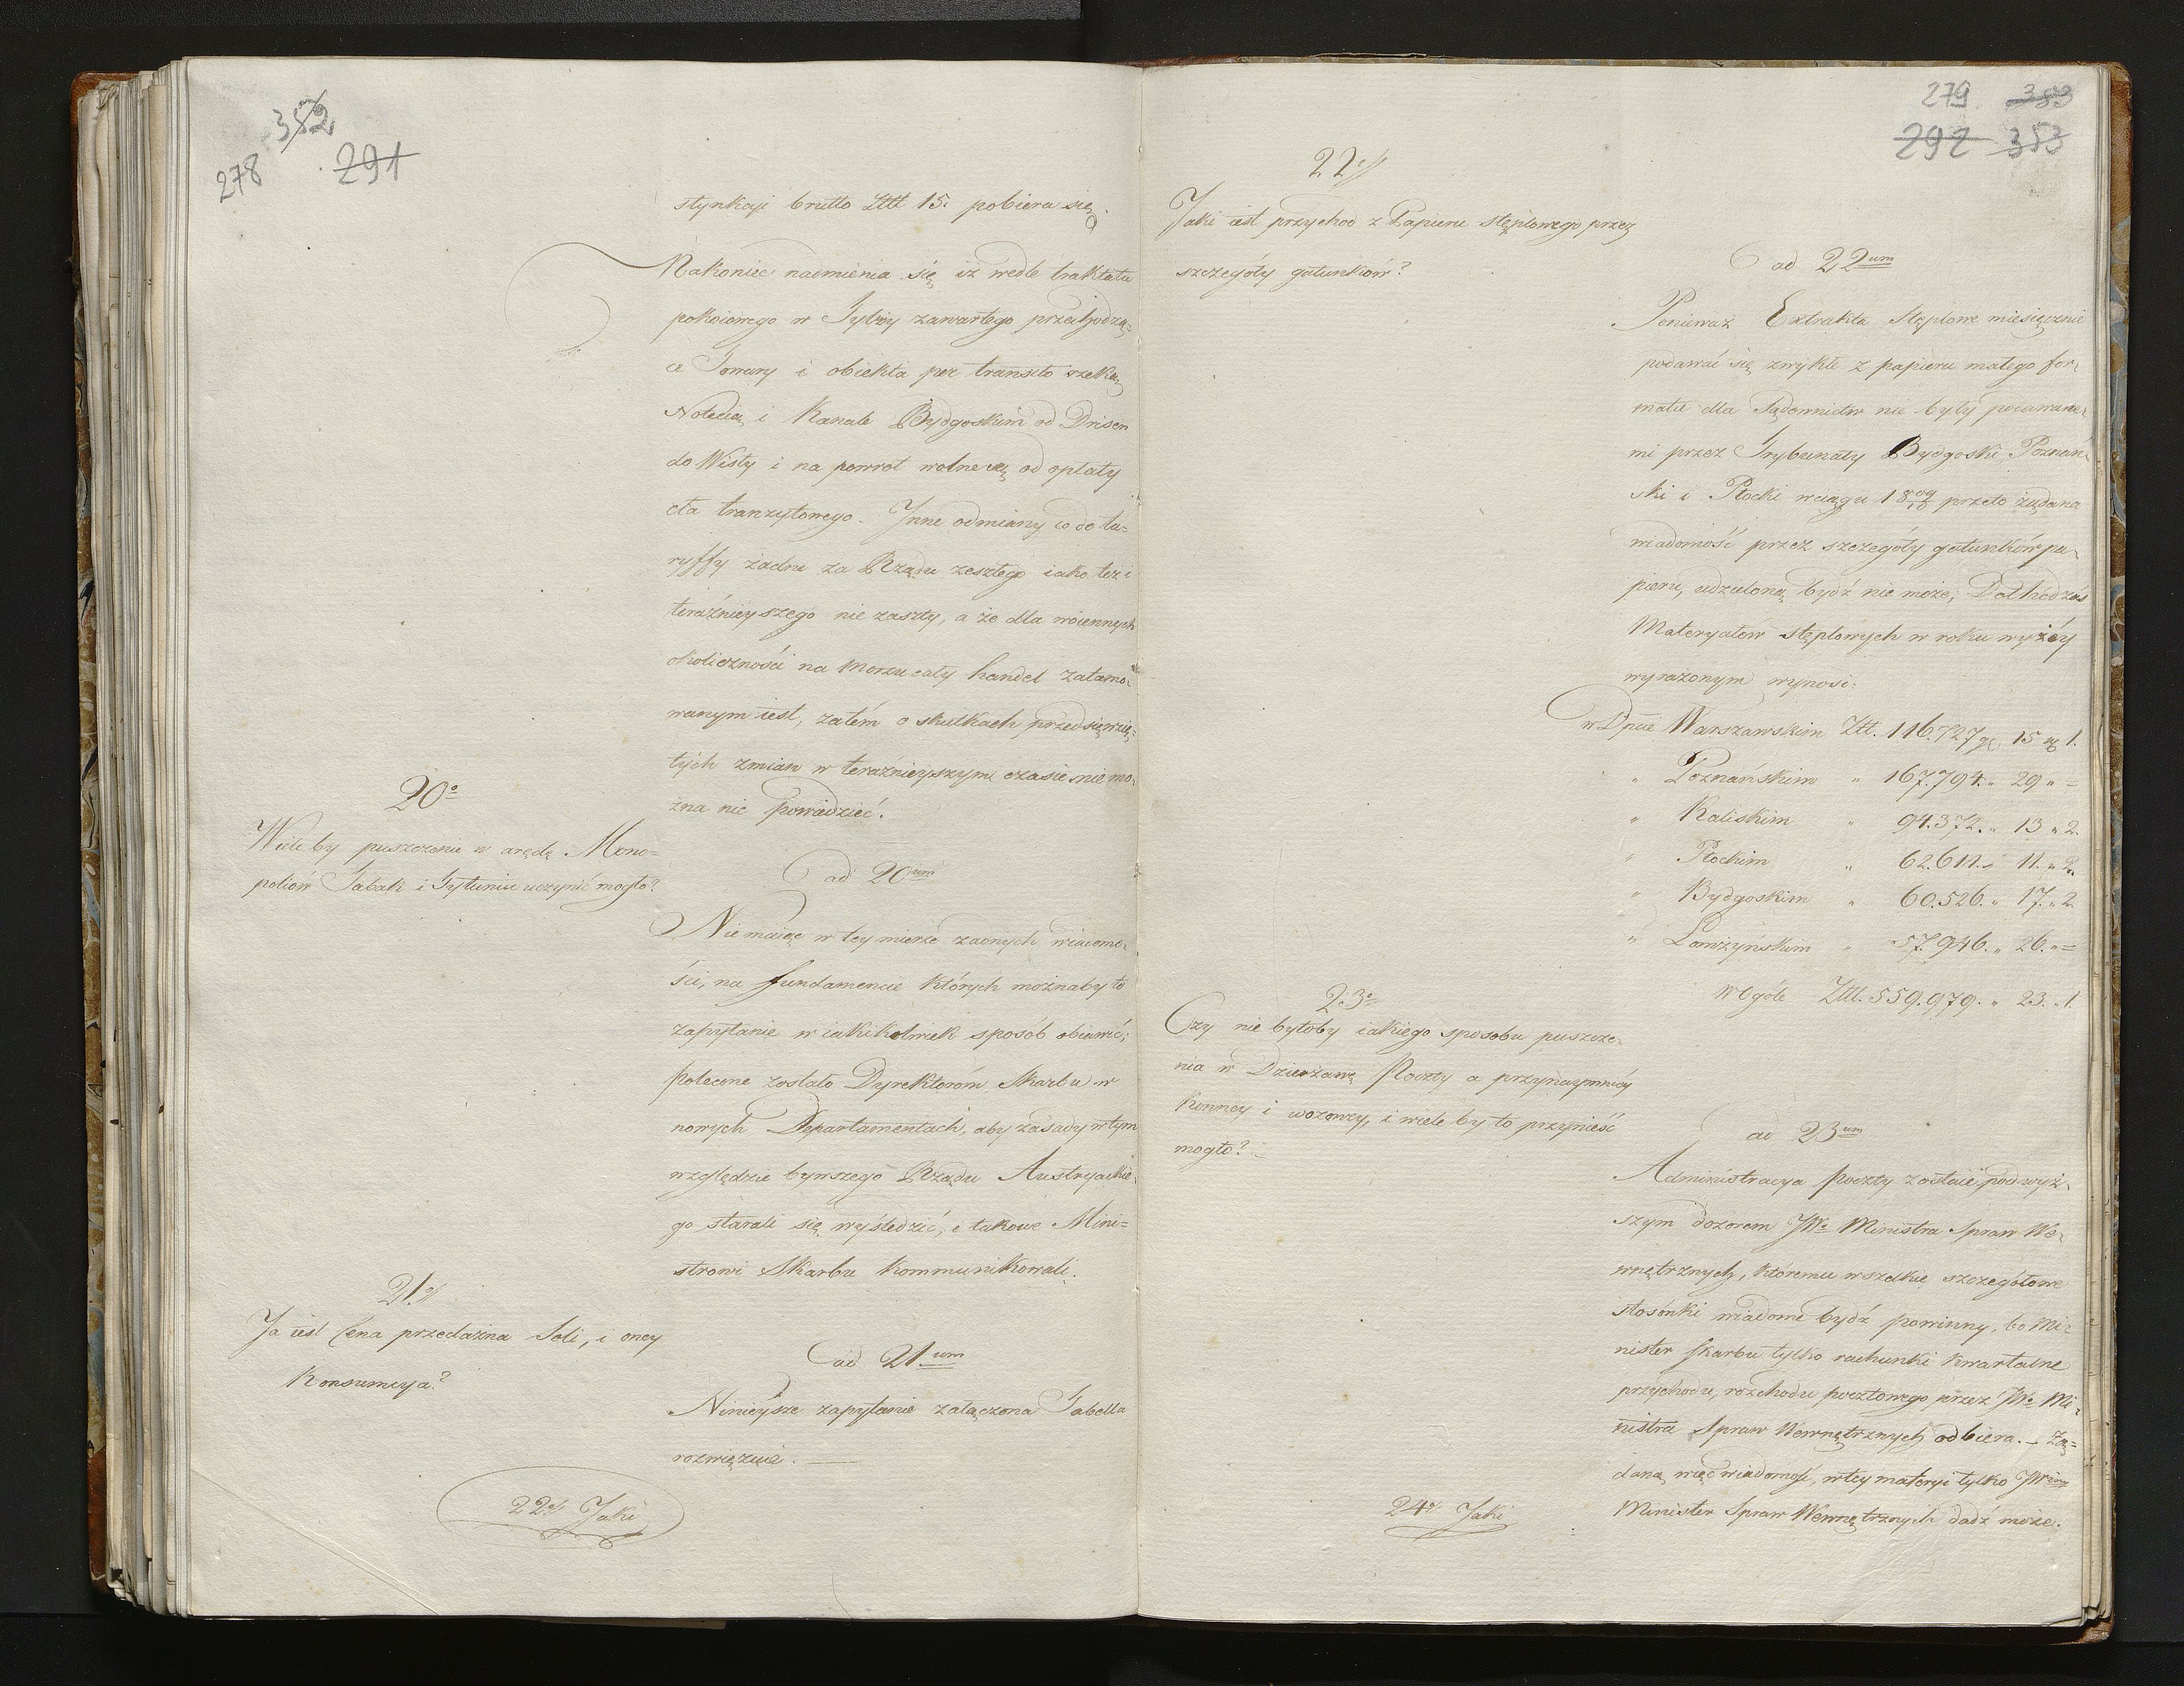 352
278 291
stynkcyi brutto Złtt 15. pobiera się.
Nakoniec nadmienia się iż wedle traktatu
pokoiowego w Tylży zawartego przechodzą=
ce Towary i obiekta per transito rzeką
Notecią i Kanale Bydgoskim od Drisen
do Wisły i na powrot wolne są od opłaty
cła tranzytowego. Inne odmiany co do ta=
ryffy żadne za Rządu zeszłego iako też i
teraźnieyszego nie zaszły, a że dla woiennych
okoliczności na morzu cały handel zatamo=
wanym iest, zatém o skutkach przedsięwzię=
tych zmian w teraźnieyszym czasie nie mo=
żna nic powiedzieć.
20o
Wiele by puszczenie w arędę Mono=
poliów Tabak i Tytuniu uczynić mogło?
ad 20um
Nie maiąc w tey mierze żadnych wiadomo=
ści, na fundamencie których możnaby to
zapytanie w iakikolwiek sposób obiawić;
polecone zostało Dyrektorom Skarbu w
nowych Departamentach, aby zasady w tym
względzie bywszego Rządu Austryackie=
go starali się wyśledzić, i takowe Mini=
strowi Skarbu kommunikowali.
21o
Ja iest Cena przedażna Soli, i oney
Konsumcya?
ad 21um
Ninieysze zapytanie załączona Tabella
rozwięzuie.
22o Jaki
279 353
292 353
22o
Jaki iest przychod z Papieru stęplowego przez
szczegóły gatunków?
ad 22um
Ponieważ Extrakta Stęplowe miesięcznie
podawać się zwykłe z papieru małego for=
matu dla Sądownictw nie były podawane=
mi przez Trybunały Bydgoski Poznań=
ski i Płocki w ciągu 1809/10 przeto żądana
wiadomość przez szczegóły gatunków pa=
pieru, udzieloną bydź nie może, Dochód zaś
Materyałow stęplowych w roku wyżéy
wyrażonym wynosi:
w Dpcie Warszawskim Złt. 116.727 gr. 15 1.
" Poznańskim " 167.794. " 29 " =
" Kaliskim " 94.372. " 13 " 2.
" Płockim " 62.611. " 11. " 2.
" Bydgoskim " 60.526. " 17. " 2
" Łomżyńskim " 57.946. " 26. " =
w Ogóle Złtt. 559.979. " 23. " 1.
23o
Czy nie byłoby iakiego sposobu puszcze=
nia w Dzierżawę Poczty a przynaymniéy
konney i wozowey, i wiele by to przynieść
mogło?
ad 23um
Administracya poczty zostaie pod wyż=
szym dozorem JWo Ministra Spraw We=
wnętrznych, któremu wszelkie szczegółowe
stosónki wiadome bydź powinny, bo Mi=
nister Skarbu tylko rachunki kwartalne
przychodu, rozchodu pocztowego przez JWo Mi=
nistra Spraw Wewnętrznych odbiera. – Żą=
daną więc wiadomość, w tey materyi tylko
Minister Spraw Wewnętrznych dadź może.
24o Jaki